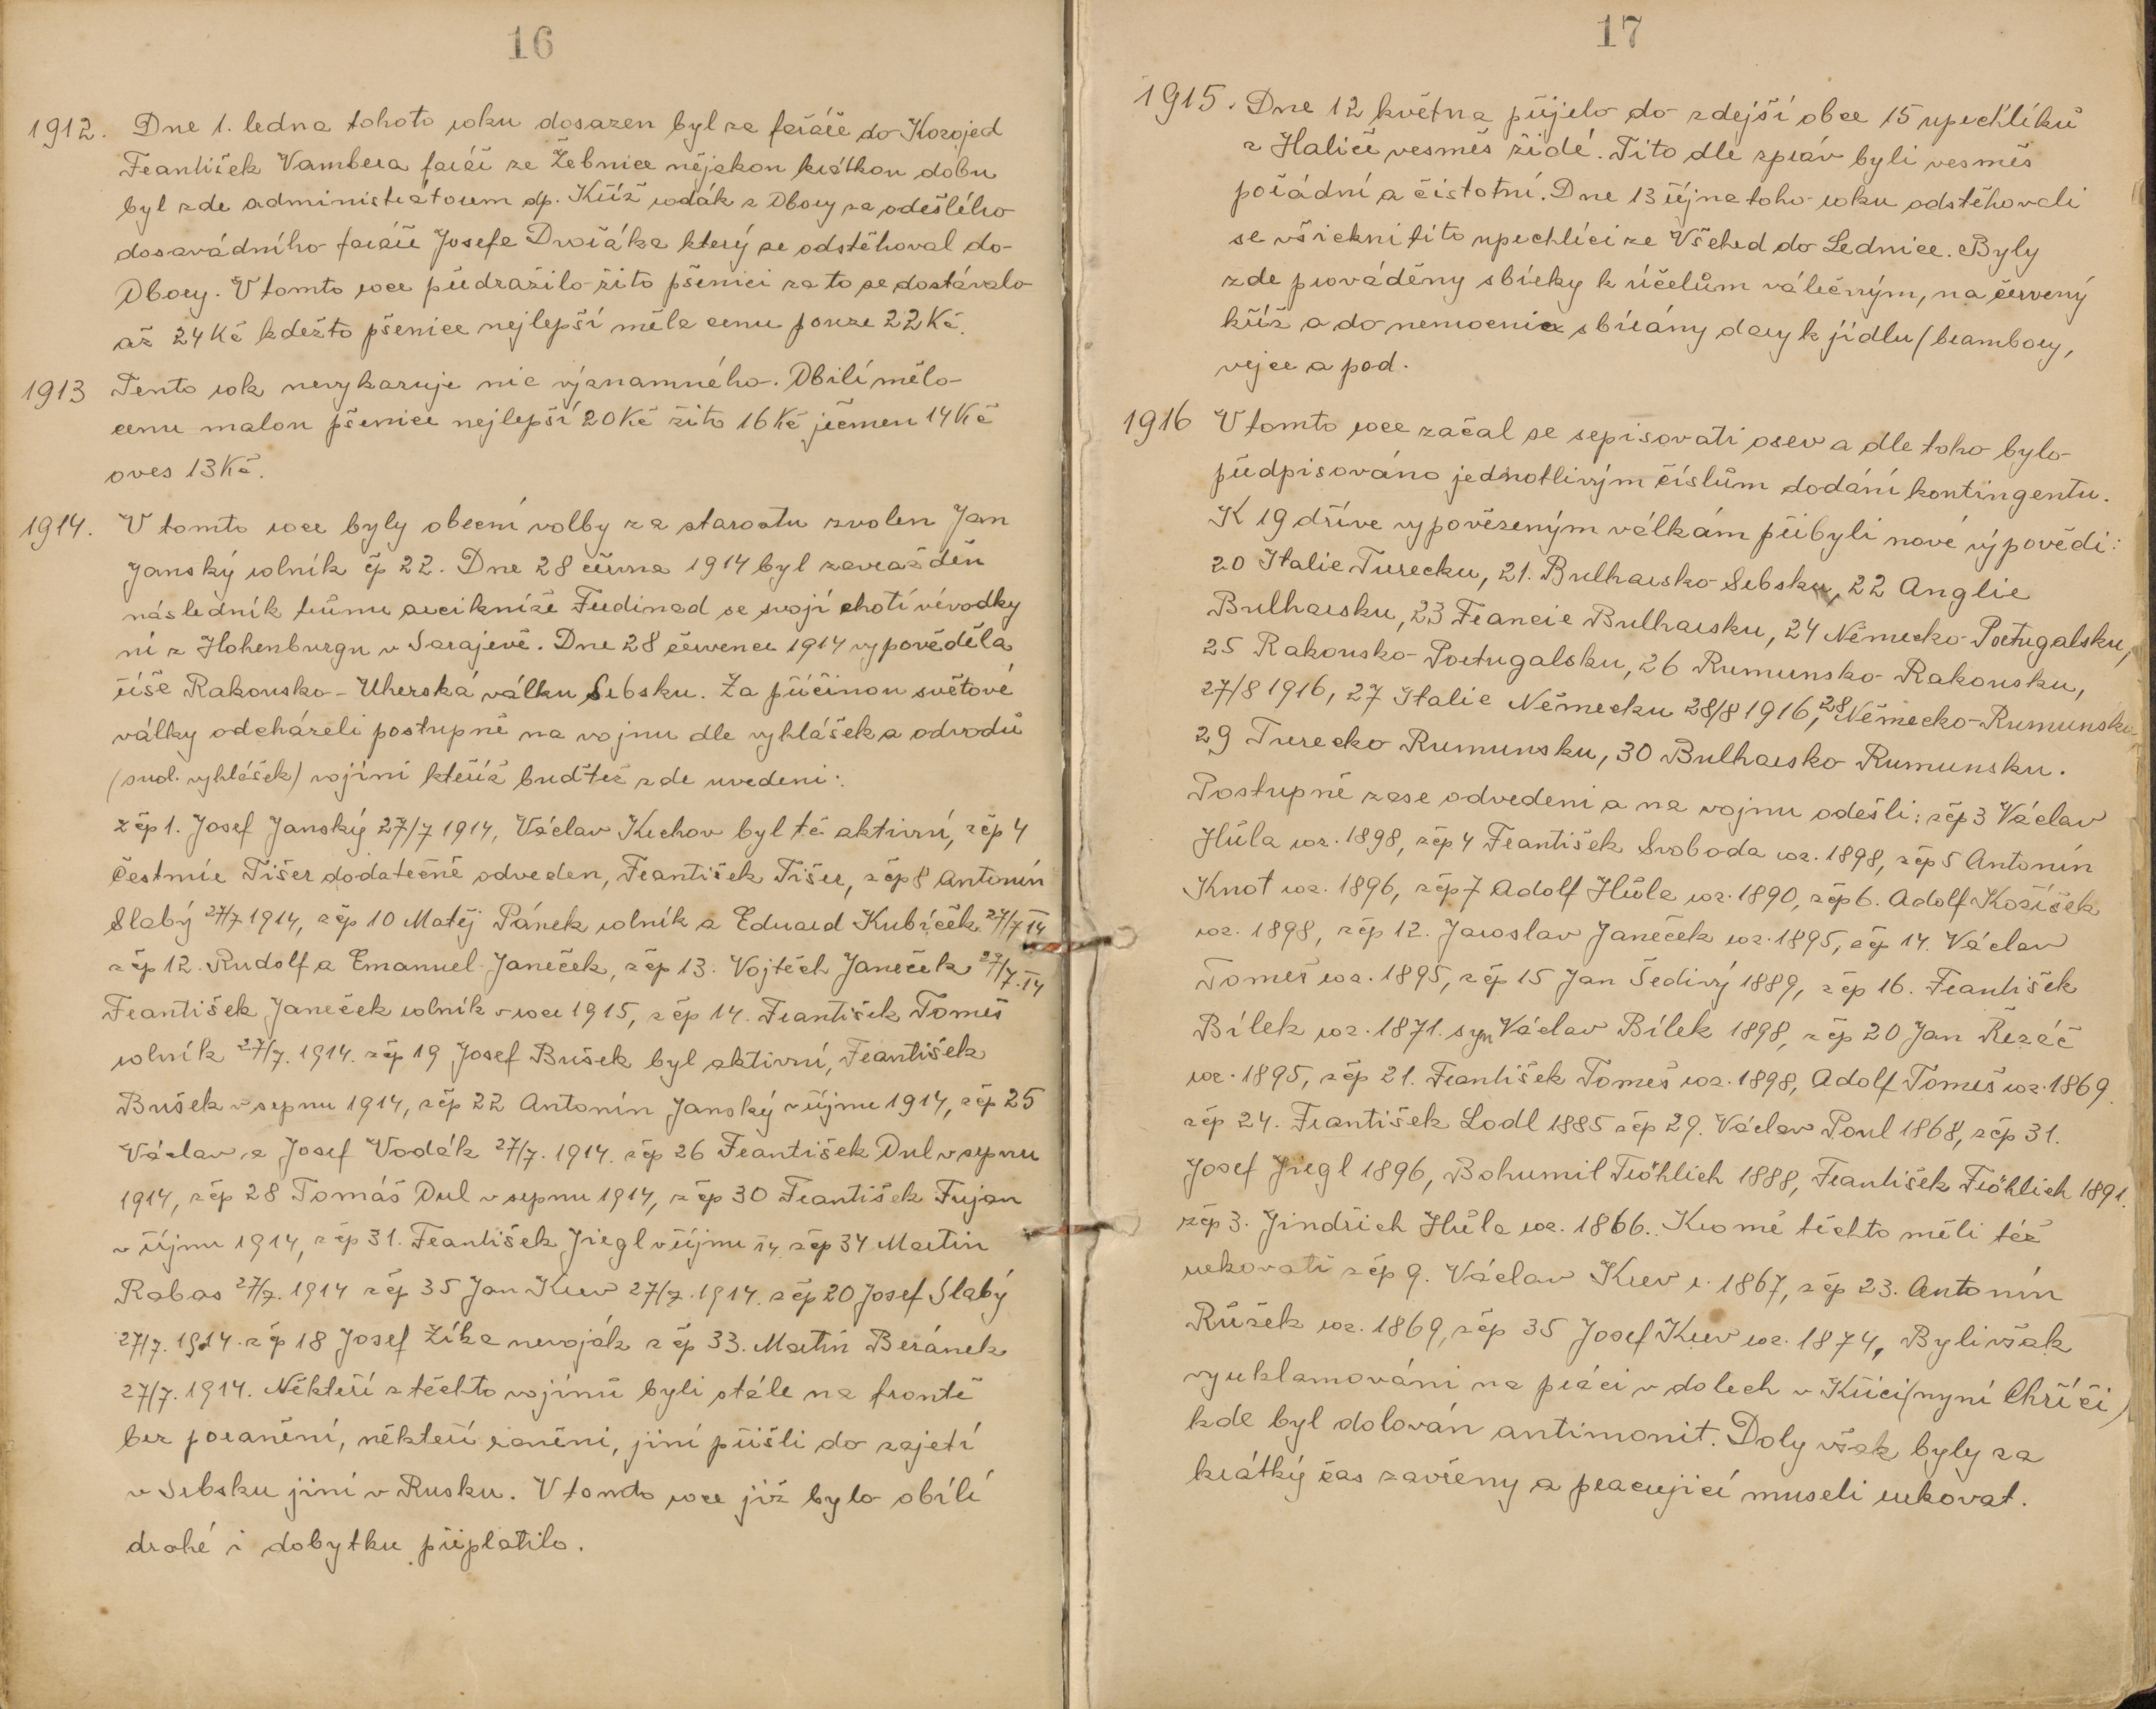 16
1912. Dne 1. ledna tohoto roku dosazen byl za faráře do Kozojed
František Vambera farář ze Žebnice nějakou krátkou dobu
byl zde administrátorem dp. Kříž rodák z Obory za odešlého
dosavádního faráře Josefa Dvořáka který se odstěhoval do
Obory. V tomto roce předražilo žito pšenici za to se dostávalo
až 24 Kč kdežto pšenice nejlepší měla cenu pouze 22 Kč.
1913 Tento rok nevykazuje nic významného. Obilí mělo
cenu malou pšenice nejlepší 20 Kč žito 16 Kč ječmen 14 Kč
oves 13 Kč.
1914. V tomto roce byly obecní volby za starostu zvolen Jan
Janský rolník čp 22. Dne 28 června 1914 byl zavražděn
následník trůnu arcikníže Ferdinad se svojí chotí vévodky
ní z Hohenburgu v Sarajevě. Dne 28 července 1914 vypověděla
říše Rakousko-Uherská válku Srbsku. Za příčinou světové
války odcházeli postupně na vojnu dle vyhlášek a odvodů
(mob. vyhlášek) vojíni kteříž buďtež zde uvedeni:
z čp 1. Josef Janský 27/7 1914, Václav Krchov byl té aktivní, z čp 4
Čestmír Tišer dodatečně odveden, František Tišer, z čp 8 Antonín
Slabý 27/7 1914, z čp 10 Matěj Pánek rolník a Eduard Kubíček 27/7 14
z čp 12. Rudolf a Emanuel Janeček, z čp 13. Vojtěch Janeček 27/7. 14
František Janeček rolník v roce 1915, z čp 14. František Tomeš
rolník 27/7. 1914. z čp 19 Josef Bušek byl aktivní, František
Bušek v srpnu 1914, z čp 22 Antonín Janský v říjnu 1914, z čp 25
Václav a Josef Vodák 27/7. 1914. z čp 26 František Dul v srpnu
1914, z čp 28 Tomáš Dul v srpnu 1914, z čp 30 František Fujan
v říjnu 1914, z čp 31. František Jiegl v říjnu 14, z čp 34 Martin
Rabas 27/7. 1914 z čp 35 Jan Krev 27/7. 1914. z čp 20 Josef Slabý
27/7. 1914. z čp 18 Josef Žíka nevoják z čp 33. Martin Beránek
27/7. 1914. Někteří z těchto vojínů byli stále na frontě
bez poranění, někteří raněni, jiní přišli do zajetí
v Srbsku jiní v Rusku. V tomto roce již bylo obílí
drahé i dobytku připlatilo.
17
1915. Dne 12 května přijelo do zdejší obce 15 uprchlíků
z Haliče vesměs židé. Tito dle zpráv byli vesměs
pořádní a čistotní. Dne 13 října toho roku odstěhovali
se všickni tito uprchlíci ze Všehrd do Lednice. Byly
zde prováděny sbírky k účelům válečným, na červený
kříž a do nemocnice sbírány dary k jídlu (brambory,
vejce a pod.
1916 V tomto roce začal se sepisovati osev a dle toho bylo
předpisováno jednotlivým číslům dodání kontingentu.
K 19 dříve vypovězeným válkám přibyli nové výpovědi:
20 Italie Turecku, 21. Bulharsko Srbsku, 22 Anglie
Bulharsku, 23 Francie Bulharsku, 24 Německo Portugalsku,
25 Rakousko-Portugalsku, 26 Rumunsko Rakousku,
27/8 1916, 27 Italie Německu 28/8 1916, 28 Německo-Rumunsku
29 Turecko Rumunsku, 30 Bulharsko Rumunsku.
Postupně zase odvedeni a na vojnu odešli: z čp 3 Václav
Hůla roz. 1898, z čp 4 František Svoboda roz. 1898, z čp 5 Antonín
Knot roz. 1896, z čp 7 Adolf Hůla roz. 1890, z čp 6. Adolf Kožíšek
roz. 1898, z čp 12. Jaroslav Janeček roz. 1895, z čp 14. Václav
Tomeš roz. 1895, z čp 15 Jan Šedivý 1889, z čp 16. František
Bílek roz. 1871. syn Václav Bílek 1898, z čp 20 Jan Řezáč
roz. 1895, z čp 21. František Tomeš roz. 1898, Adolf Tomeš roz. 1869.
z čp 24. František Lodl 1885 z čp 29. Václav Poul 1868, z čp 31.
Josef Jiegl 1896, Bohumil Fröhlich 1888, František Fröhlich 1891.
z čp 3. Jindřich Hůla roz. 1866. Kromě těchto měli též
rukovati z čp 9. Václav Krev r. 1867, z čp 23. Antonín
Růžek roz. 1869, z čp 35 Josef Krev roz. 1874, Byli však
vyreklamováni na práci v dolech v Křici (nyní Chříči)
kde byl dolován antimonit. Doly však byly za
krátký čas zavřeny a pracující museli rukovat.